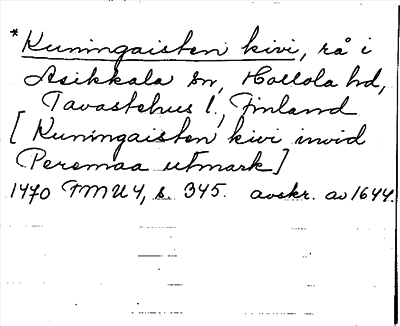 *Kuningaisten kivi, rå i
Asikkala sn, Hollola hd,
Tavastehus l., Finland
[Kuningaisten kivi invid
Peremaa utmark]
1470 FMU 4, s. 345. avskr. av 1644.